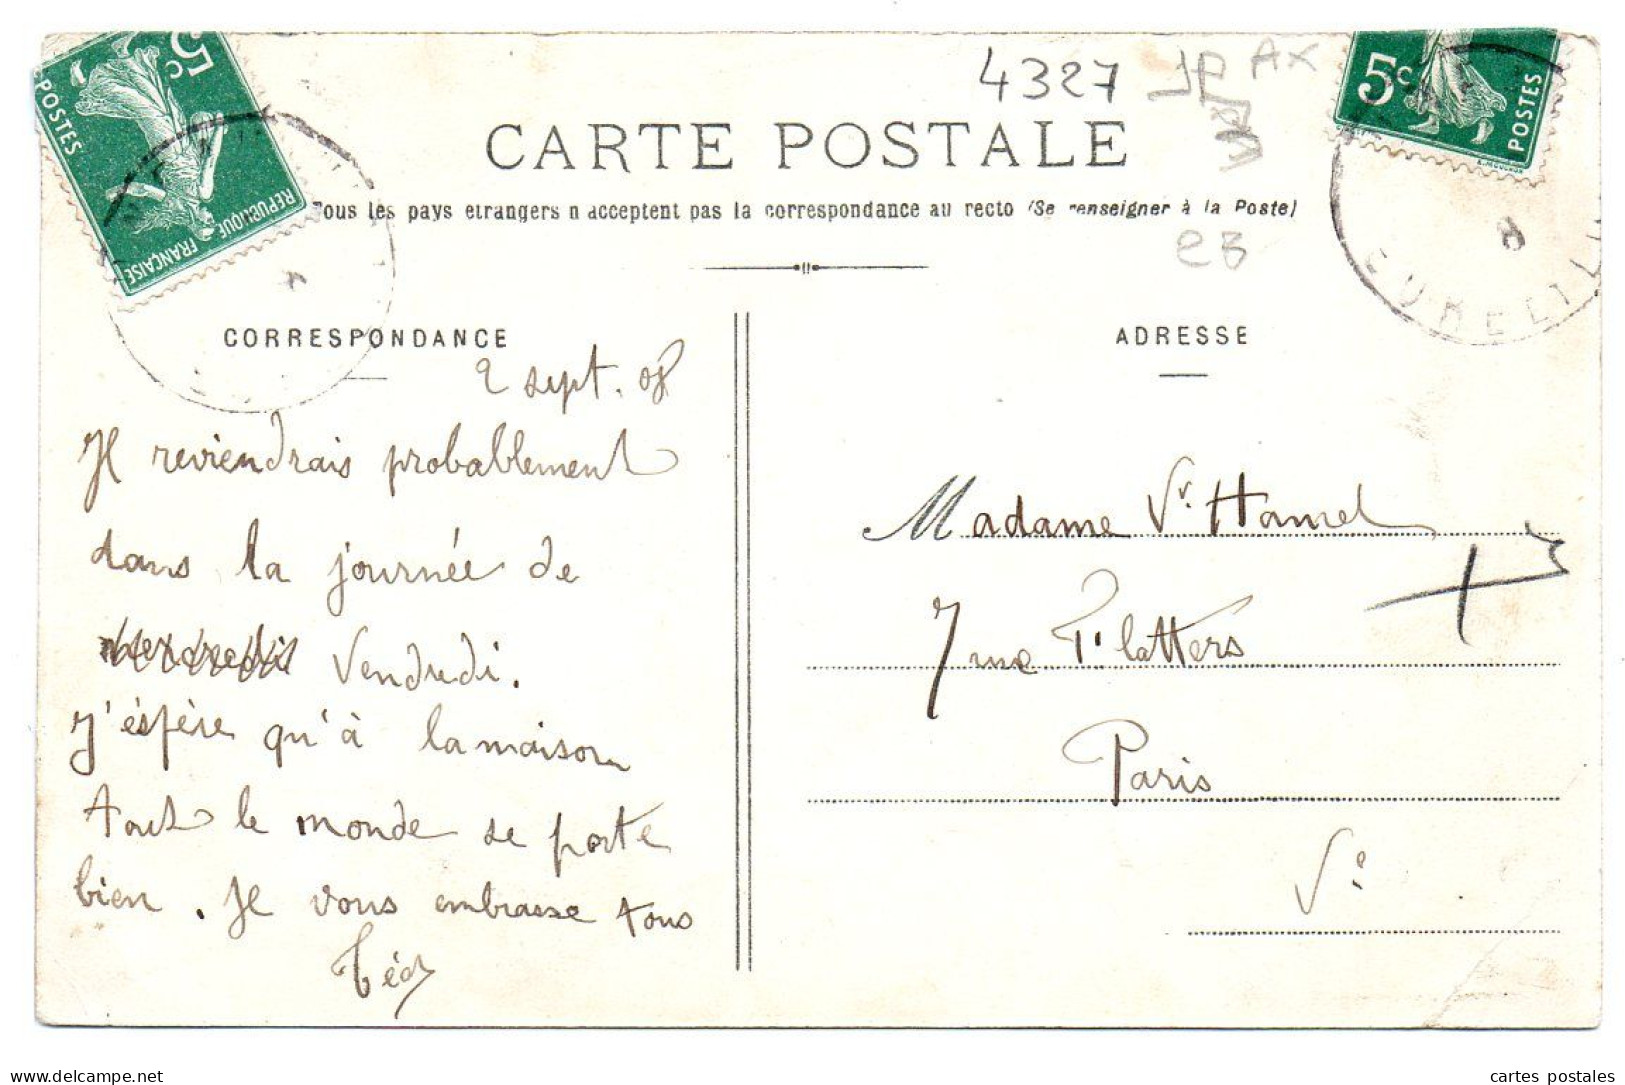 4327 JP AX
CARTE POSTALE
Tous les pays etrangers n acceptent pas la correspondance au recto (Se renseigner à la Poste)
eB
5c
POSTES
REPUBLIQUE FRANÇAISE
5c
POSTES
8
EURE
CORRESPONDANCE
2 sept. 08
Je reviendrais probablement
dans la journée de
mercredi Vendredi.
J'éspère qu'à la maison
tout le monde se porte
bien. Je vous embrasse tous
Téd
ADRESSE
Madame Vr. Hamel
7 rue Platters
Paris
Ve
cartes-delcampe.net
cartes postales